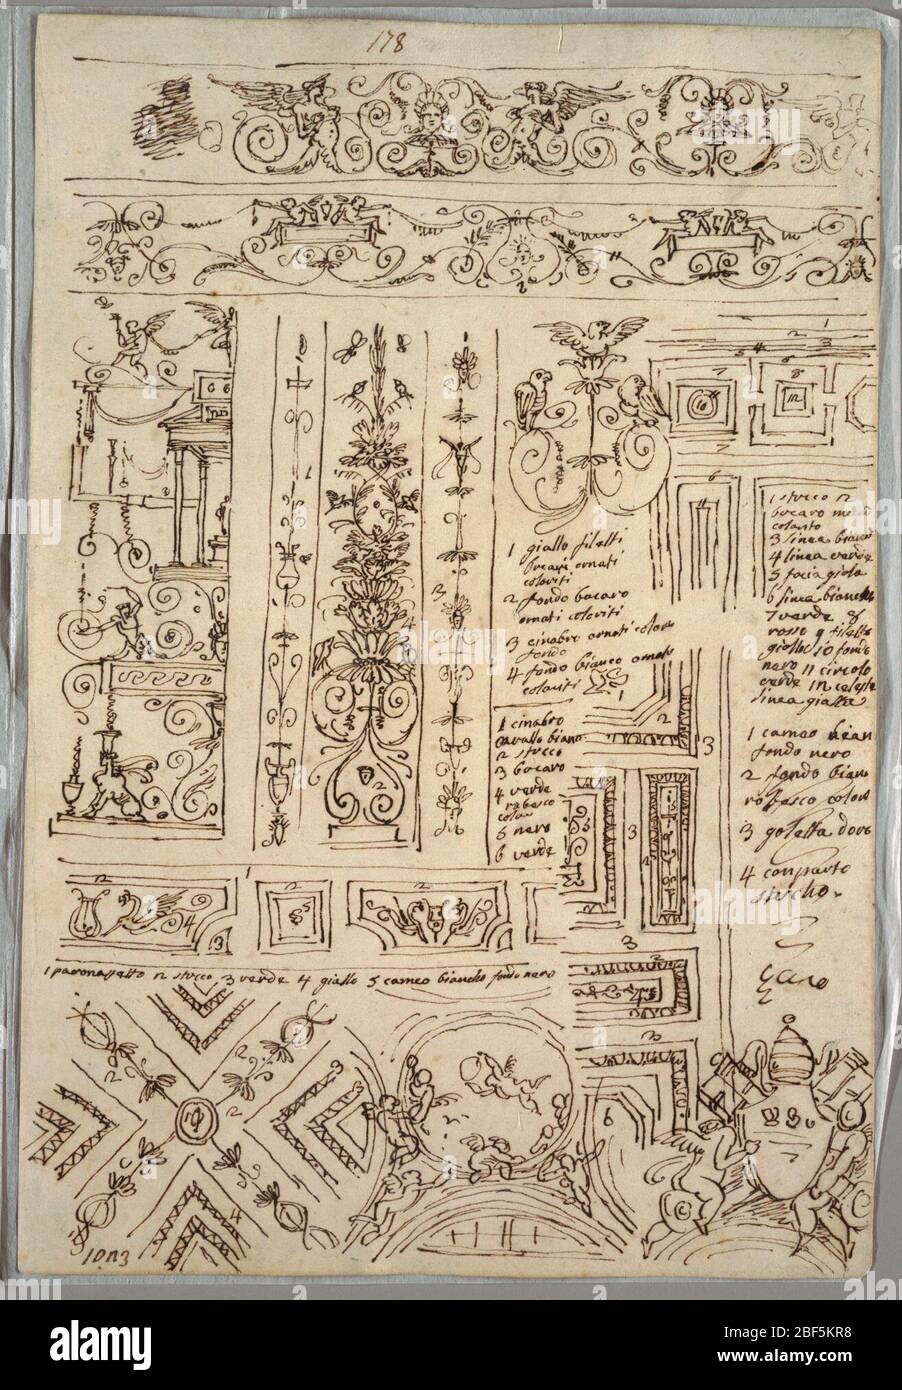 178
1 giallo filetti
ornati
coloriti
2 fondo bocaro
ornati coloriti
3 cinabro ornati colora
fondo
4 fondo bianco ornati
coloriti
1 stucco 2
bocaro
colanto
3 linea
4 linea verde
5 facia giala
6 linea biancha
7 verde 8
rosso 9 filetto
giallo 10 fondo
nero 11 circolo
verde 12 celeste
linea gialla
1 cinabro
cavallo bian
2 stucco
3 bocaro
4 verde
rabesco
colo
5 nero
6 verde
1 cameo bian
fondo nero
2 fondo bian
rabesco colora
3 goletta doro
4 conparto
stucho.
1 pavonazzetto 2 stucco 3 verde 4 giallo 5 cameo biancho fondo nero
alamy
Image ID: 2BF5KR8
www.alamy.com